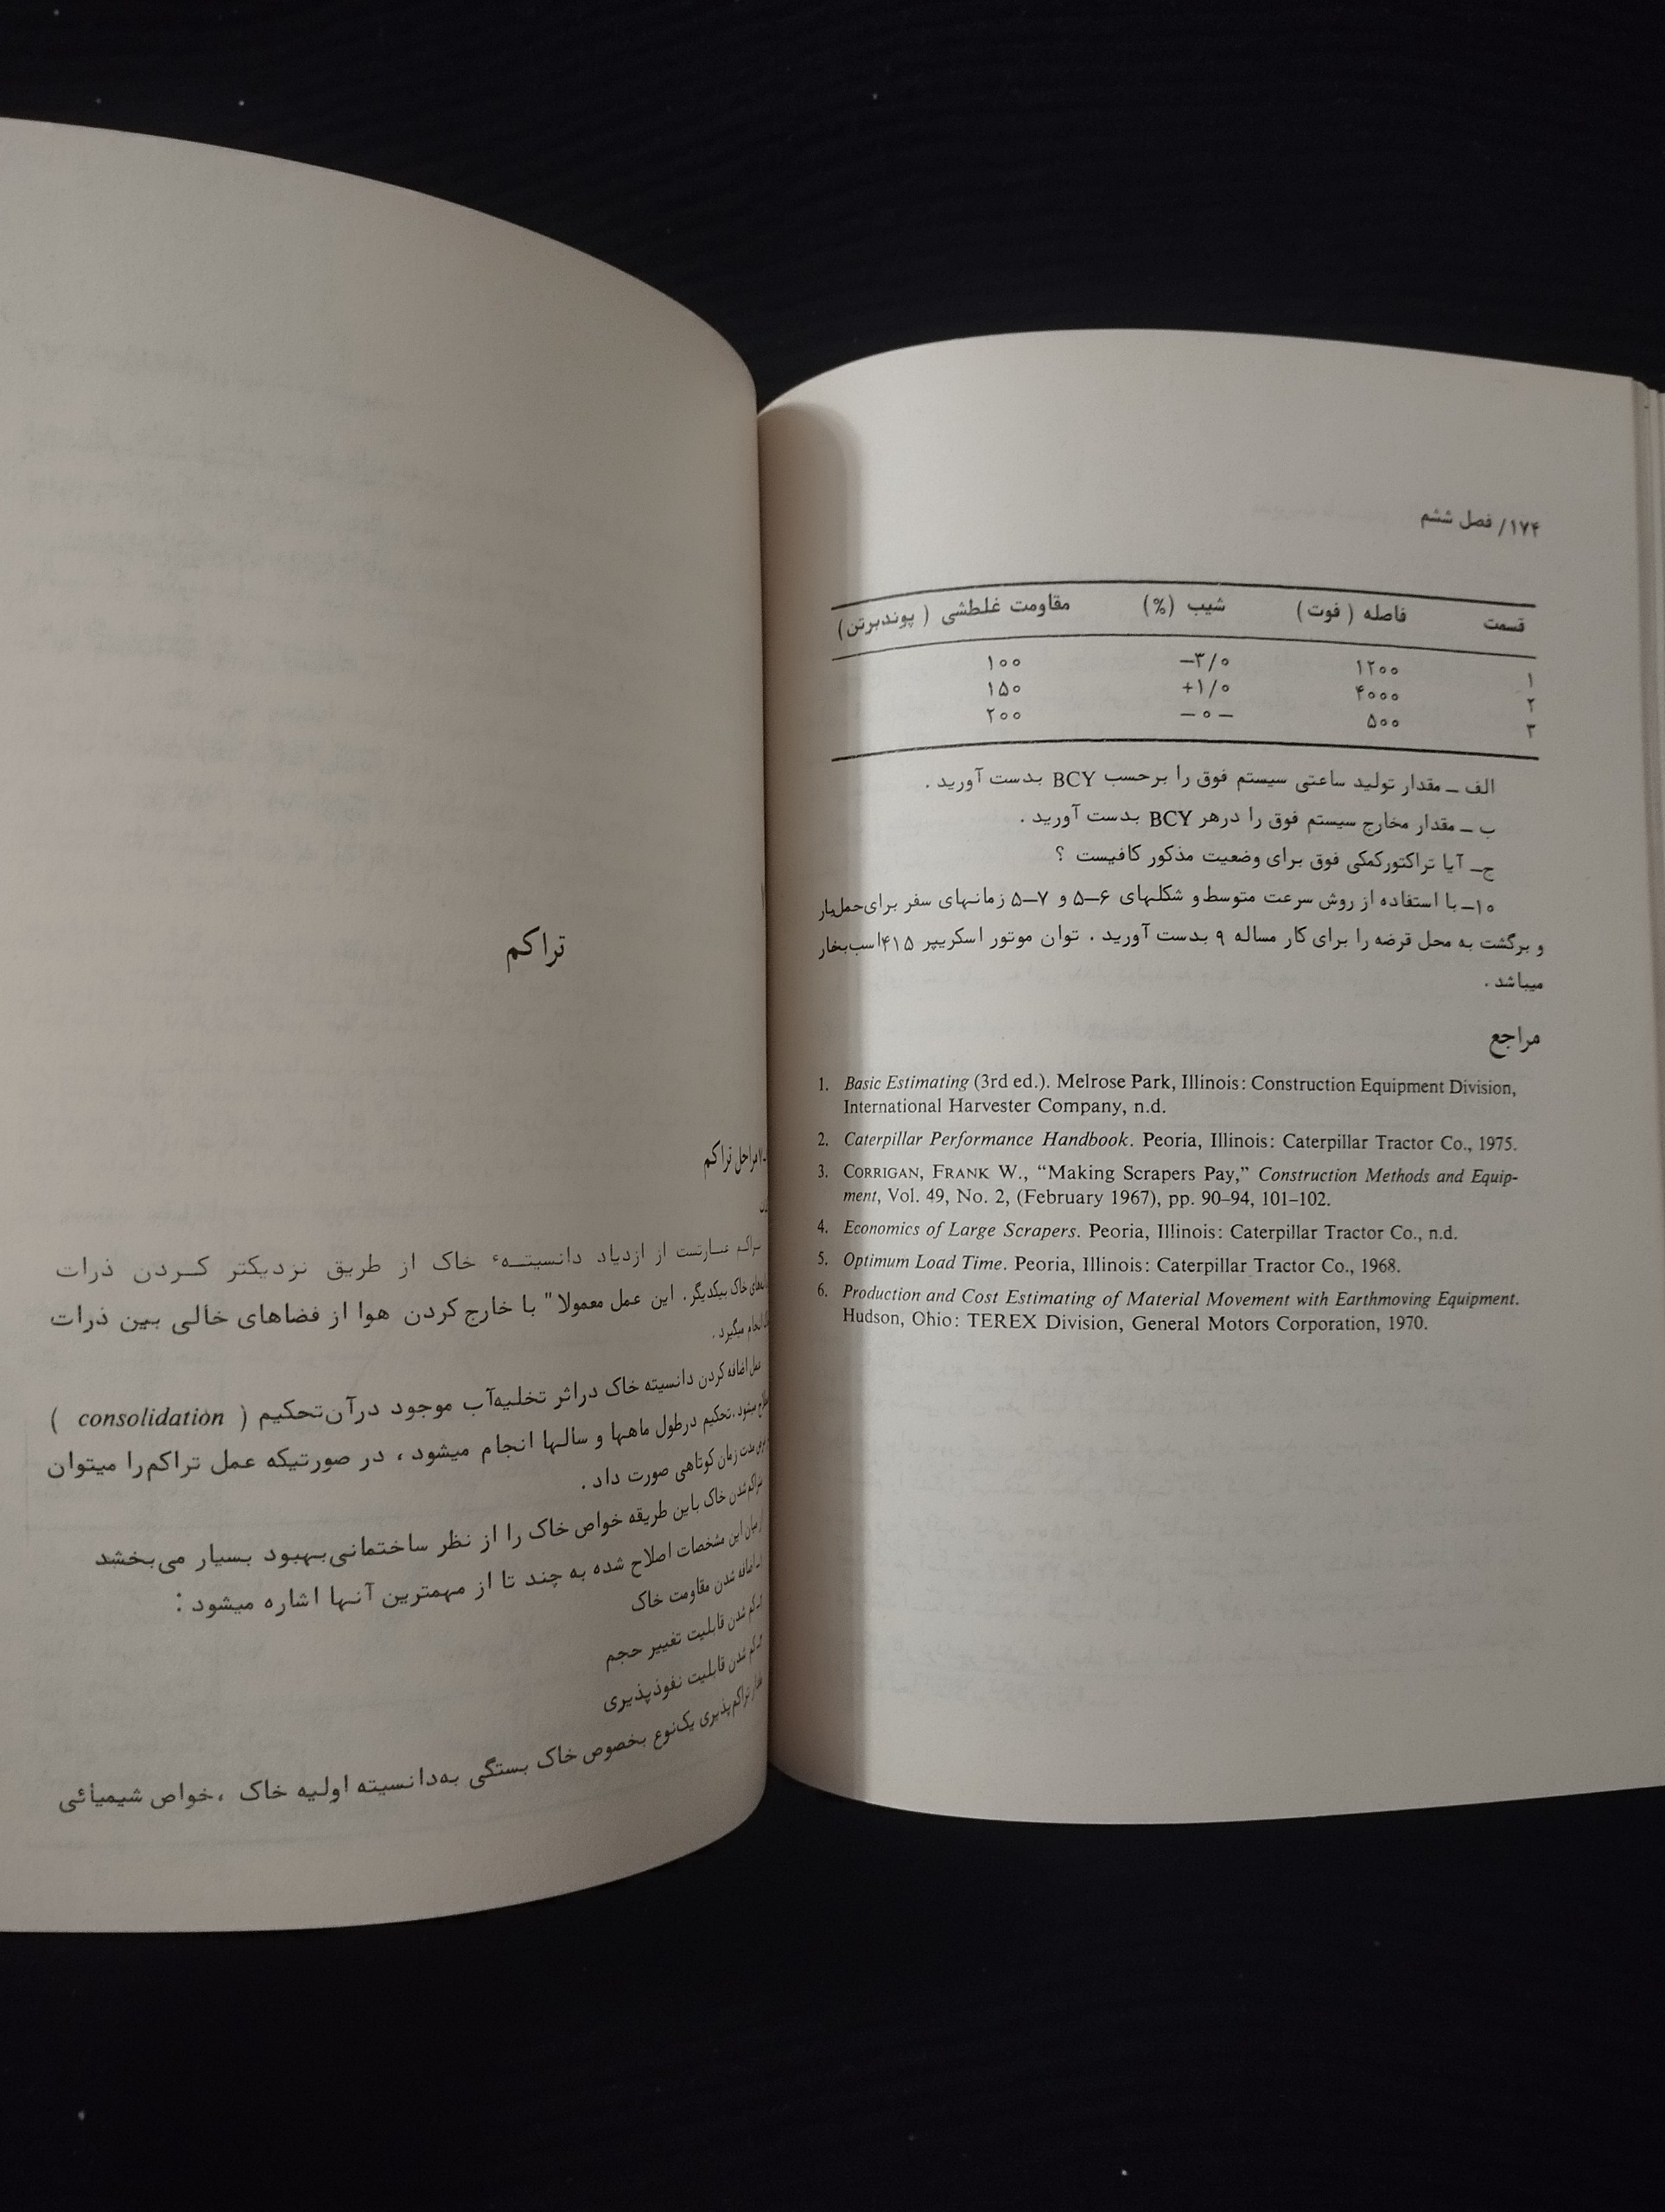 ۱۷۴/ فصل ششم
قسمت فاصله ( فوت ) شیب (%) مقاومت غلطشی ( پوندبرتن )
۱ ۱۲۰۰ −۳/۰ ۱۰۰
۲ ۴۰۰۰ +۱/۰ ۱۵۰
۳ ۵۰۰ −۰− ۲۰۰
الف ــ مقدار تولید ساعتی سیستم فوق را برحسب BCY بدست آورید .
ب ــ مقدار مخارج سیستم فوق را درهر BCY بدست آورید .
ج ــ آیا تراکتورکمکی فوق برای وضعیت مذکور کافیست ؟
۱۰ــ با استفاده از روش سرعت متوسط و شکلهای ۶ــ۵ و ۷ــ۵ زمانهای سفر برای حمل‌بار
و برگشت به محل قرضه را برای کار مساله ۹ بدست آورید . توان موتور اسکریپر ۴۱۵ اسب‌بخار
میباشد .
مراجع
1. Basic Estimating (3rd ed.). Melrose Park, Illinois: Construction Equipment Division,
International Harvester Company, n.d.
2. Caterpillar Performance Handbook. Peoria, Illinois: Caterpillar Tractor Co., 1975.
3. CORRIGAN, FRANK W., “Making Scrapers Pay,” Construction Methods and Equip-
ment, Vol. 49, No. 2, (February 1967), pp. 90–94, 101–102.
4. Economics of Large Scrapers. Peoria, Illinois: Caterpillar Tractor Co., n.d.
5. Optimum Load Time. Peoria, Illinois: Caterpillar Tractor Co., 1968.
6. Production and Cost Estimating of Material Movement with Earthmoving Equipment.
Hudson, Ohio: TEREX Division, General Motors Corporation, 1970.
تراکم
مراحل تراکم
تراکم عبارتست از ازدیاد دانسیتهء خاک از طریق نزدیکتر کردن ذرات
خاک بیکدیگر . این عمل معمولا" با خارج کردن هوا از فضاهای خالی بین ذرات
انجام میگیرد .
عمل اضافه کردن دانسیته خاک دراثر تخلیه‌آب موجود درآن تحکیم ( consolidation )
میشود . تحکیم درطول ماهها و سالها انجام میشود ، در صورتیکه عمل تراکم را میتوان
مدت زمان کوتاهی صورت داد .
متراکم شدن خاک باین طریقه خواص خاک را از نظر ساختمانی بهبود بسیار می‌بخشد
از میان این مشخصات اصلاح شده به چند تا از مهمترین آنها اشاره میشود :
اضافه شدن مقاومت خاک
کم شدن قابلیت تغییر حجم
کم شدن قابلیت نفوذپذیری
تراکم‌پذیری یک‌نوع بخصوص خاک بستگی به‌دانسیته اولیه خاک ، خواص شیمیائی